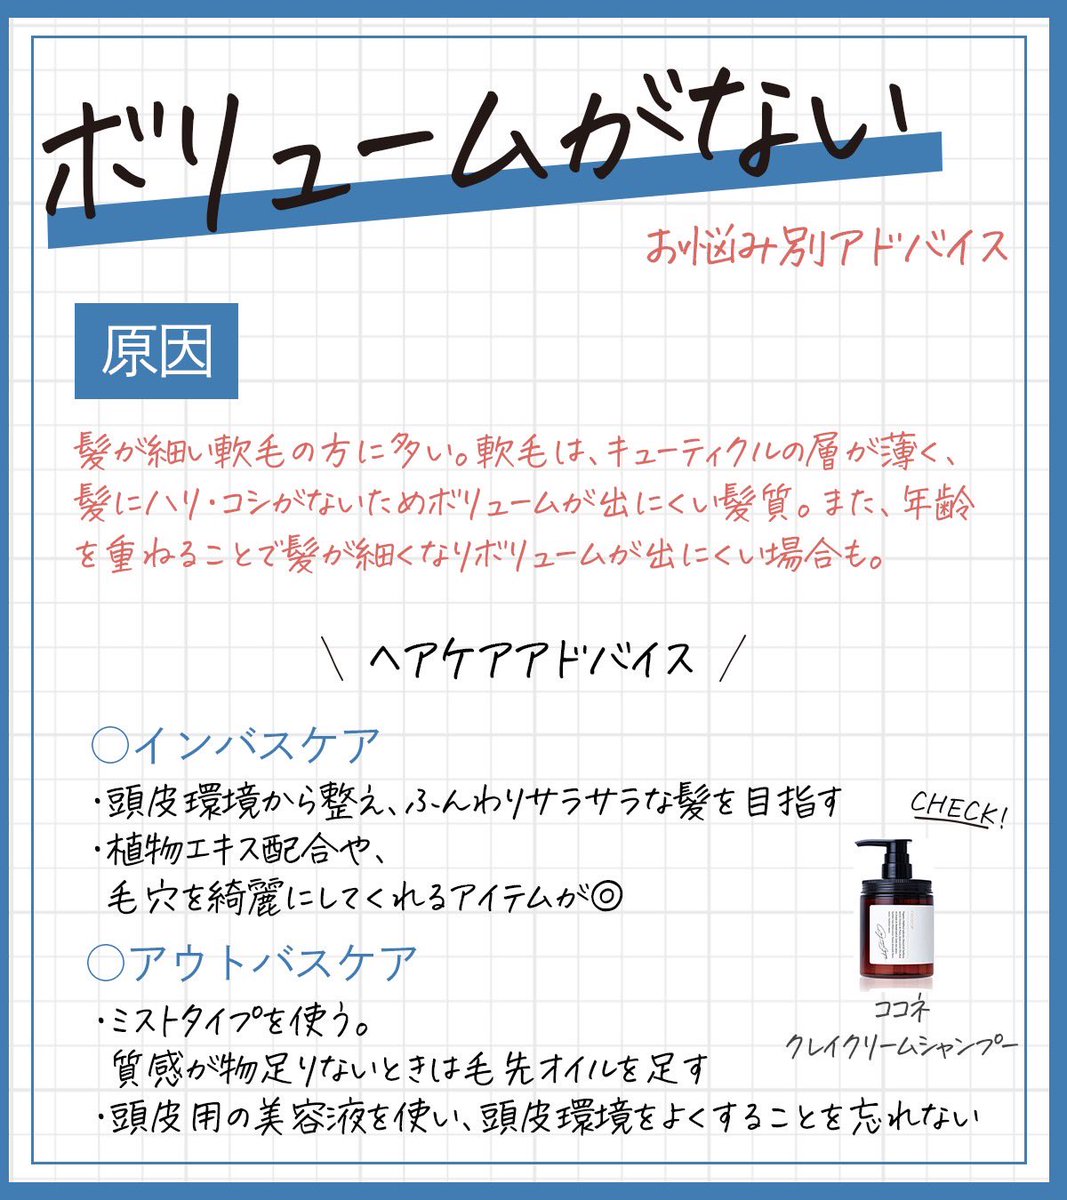 ボリュームがない
お悩み別アドバイス
原因
髪が細い軟毛の方に多い。軟毛は、キューティクルの層が薄く、
髪にハリ・コシがないためボリュームが出にくい髪質。また、年齢
を重ねることで髪が細くなりボリュームが出にくい場合も。
\ ヘアケアアドバイス /
○インバスケア
・頭皮環境から整え、ふんわりサラサラな髪を目指す
・植物エキス配合や、
毛穴を綺麗にしてくれるアイテムが◎
CHECK!
○アウトバスケア
・ミストタイプを使う。
質感が物足りないときは毛先オイルを足す
・頭皮用の美容液を使い、頭皮環境をよくすることを忘れない
ココネ
クレイクリームシャンプー